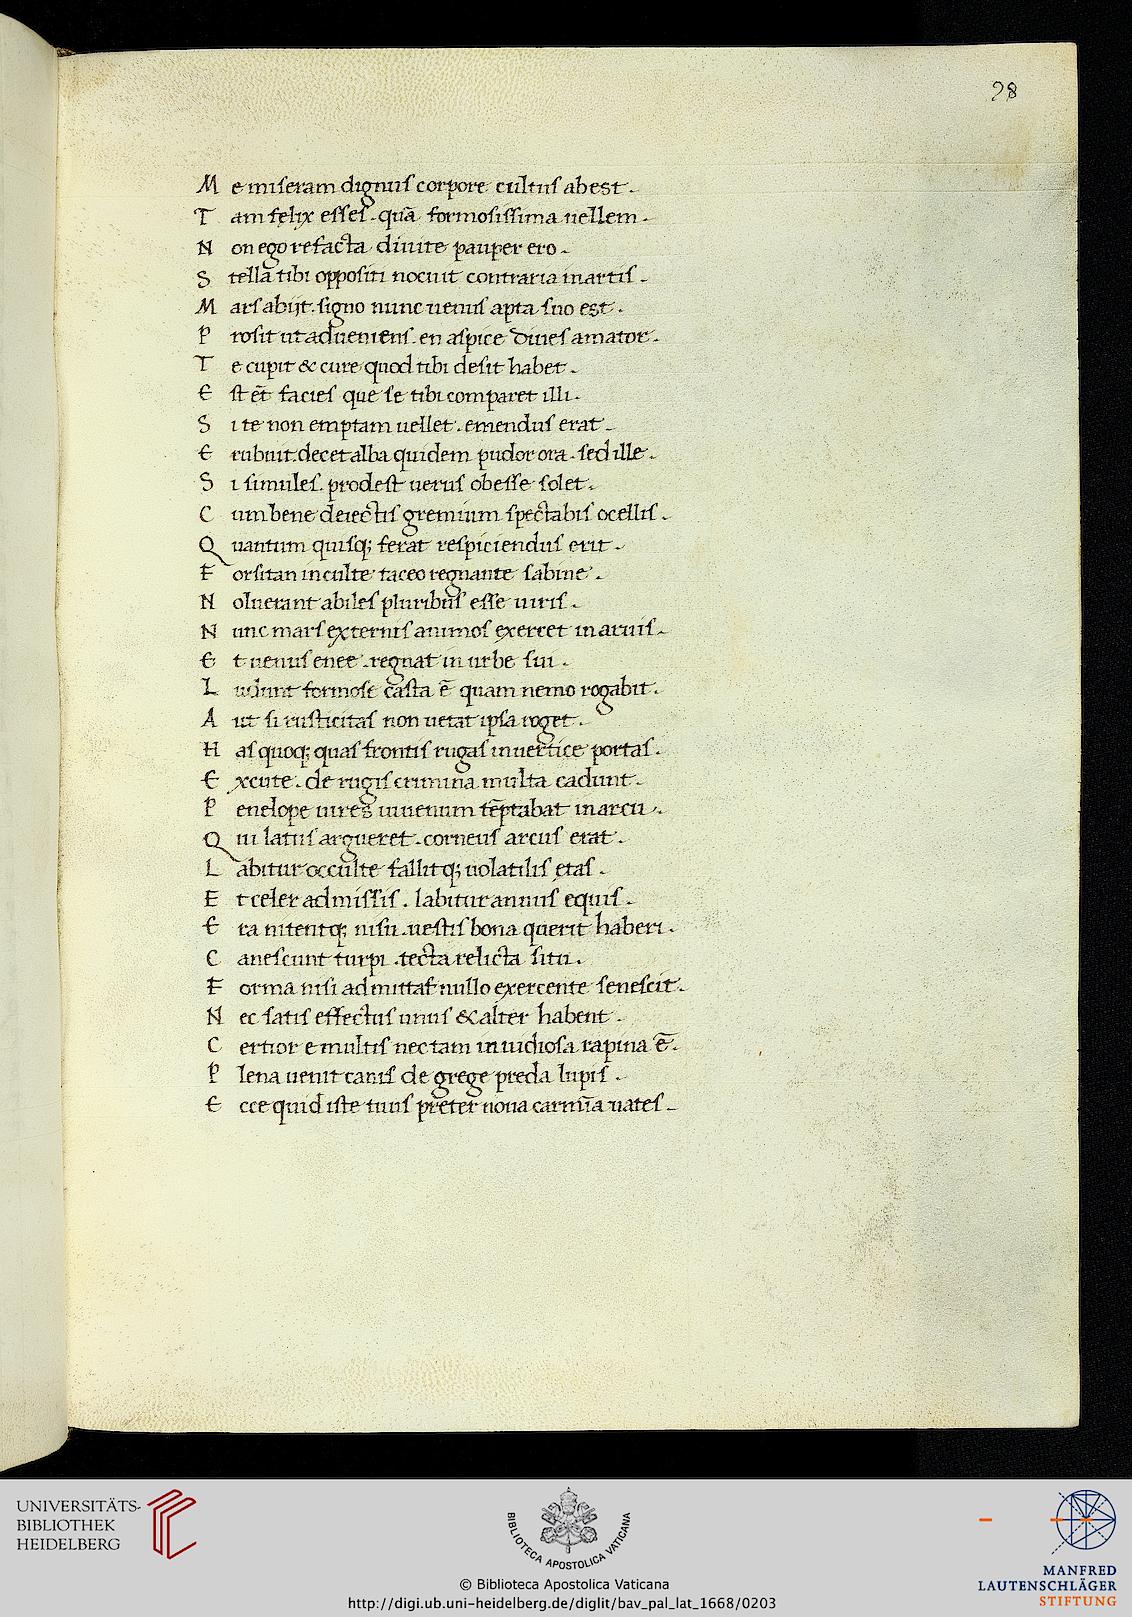 98
Me miseram dignus corpore cultus abest.
Tam felix esses. quā formosissima uellem.
Non ego te facta diuite pauper ero.
Stella tibi oppositi nocuit contraria martis.
Mars abijt. signo nunc uenus apta suo est.
Prosit ut adueniens. en aspice diues amator.
Te cupit & cure quod tibi desit habet.
Est ēt facies que se tibi comparet illi.
Si te non emptam uellet. emendus erat.
Erubuit. decet alba quidem pudor ora. sed ille.
Si simules. prodest uerus obesse solet.
Cum bene deiectis gremium spectabis ocellis.
Quantum quisq; ferat respiciendus erit.
Forsitan inculte taceo regnante sabine.
Noluerant abiles pluribus esse uiris.
Nunc mars externis animos exercet in aruis.
Et uenus enee. regnat in urbe sui.
Ludunt formose casta ē quam nemo rogabit.
Aut si rusticitas non uetat ipsa roget.
Has quoq; quas frontis rugas in uertice portas.
Excute. de rugis crimina multa cadunt.
Penelope uires iuuenum tēptabat in arcu.
Qui latus argueret. corneus arcus erat.
Labitur occulte fallitq; uolatilis etas.
Et celer admissis. labitur annus equis.
Era nitentq; nisu. uestis bona querit haberi.
Canescunt turpi. tecta relicta situ.
Forma nisi admittas nullo exercente senescit.
Nec satis effectus unus & alter habent.
Certior e multis nec tam inuidiosa rapina ē.
Plena uenit canis de grege preda lupis.
Ecce quid iste tuus preter noua carmīa uates.
UNIVERSITÄTS-
BIBLIOTHEK
HEIDELBERG
BIBLIOTECA APOSTOLICA VATICANA
MANFRED
LAUTENSCHLÄGER
STIFTUNG
© Biblioteca Apostolica Vaticana
http://digi.ub.uni-heidelberg.de/diglit/bav_pal_lat_1668/0203